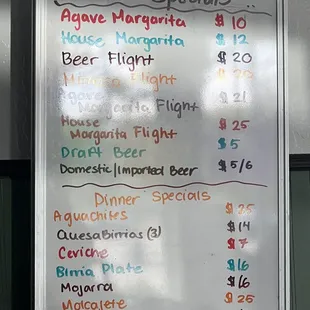 Specials
Agave Margarita $10
House Margarita $12
Beer Flight $20
Mimosa Flight $20
Agave
Margarita Flight $21
House
Margarita Flight $25
Draft Beer $5
Domestic/Imported Beer $5/6
Dinner Specials
Aguachiles $25
QuesaBirrias (3) $14
Ceviche $7
Birria Plate $16
Mojarra $16
Molcalete $25